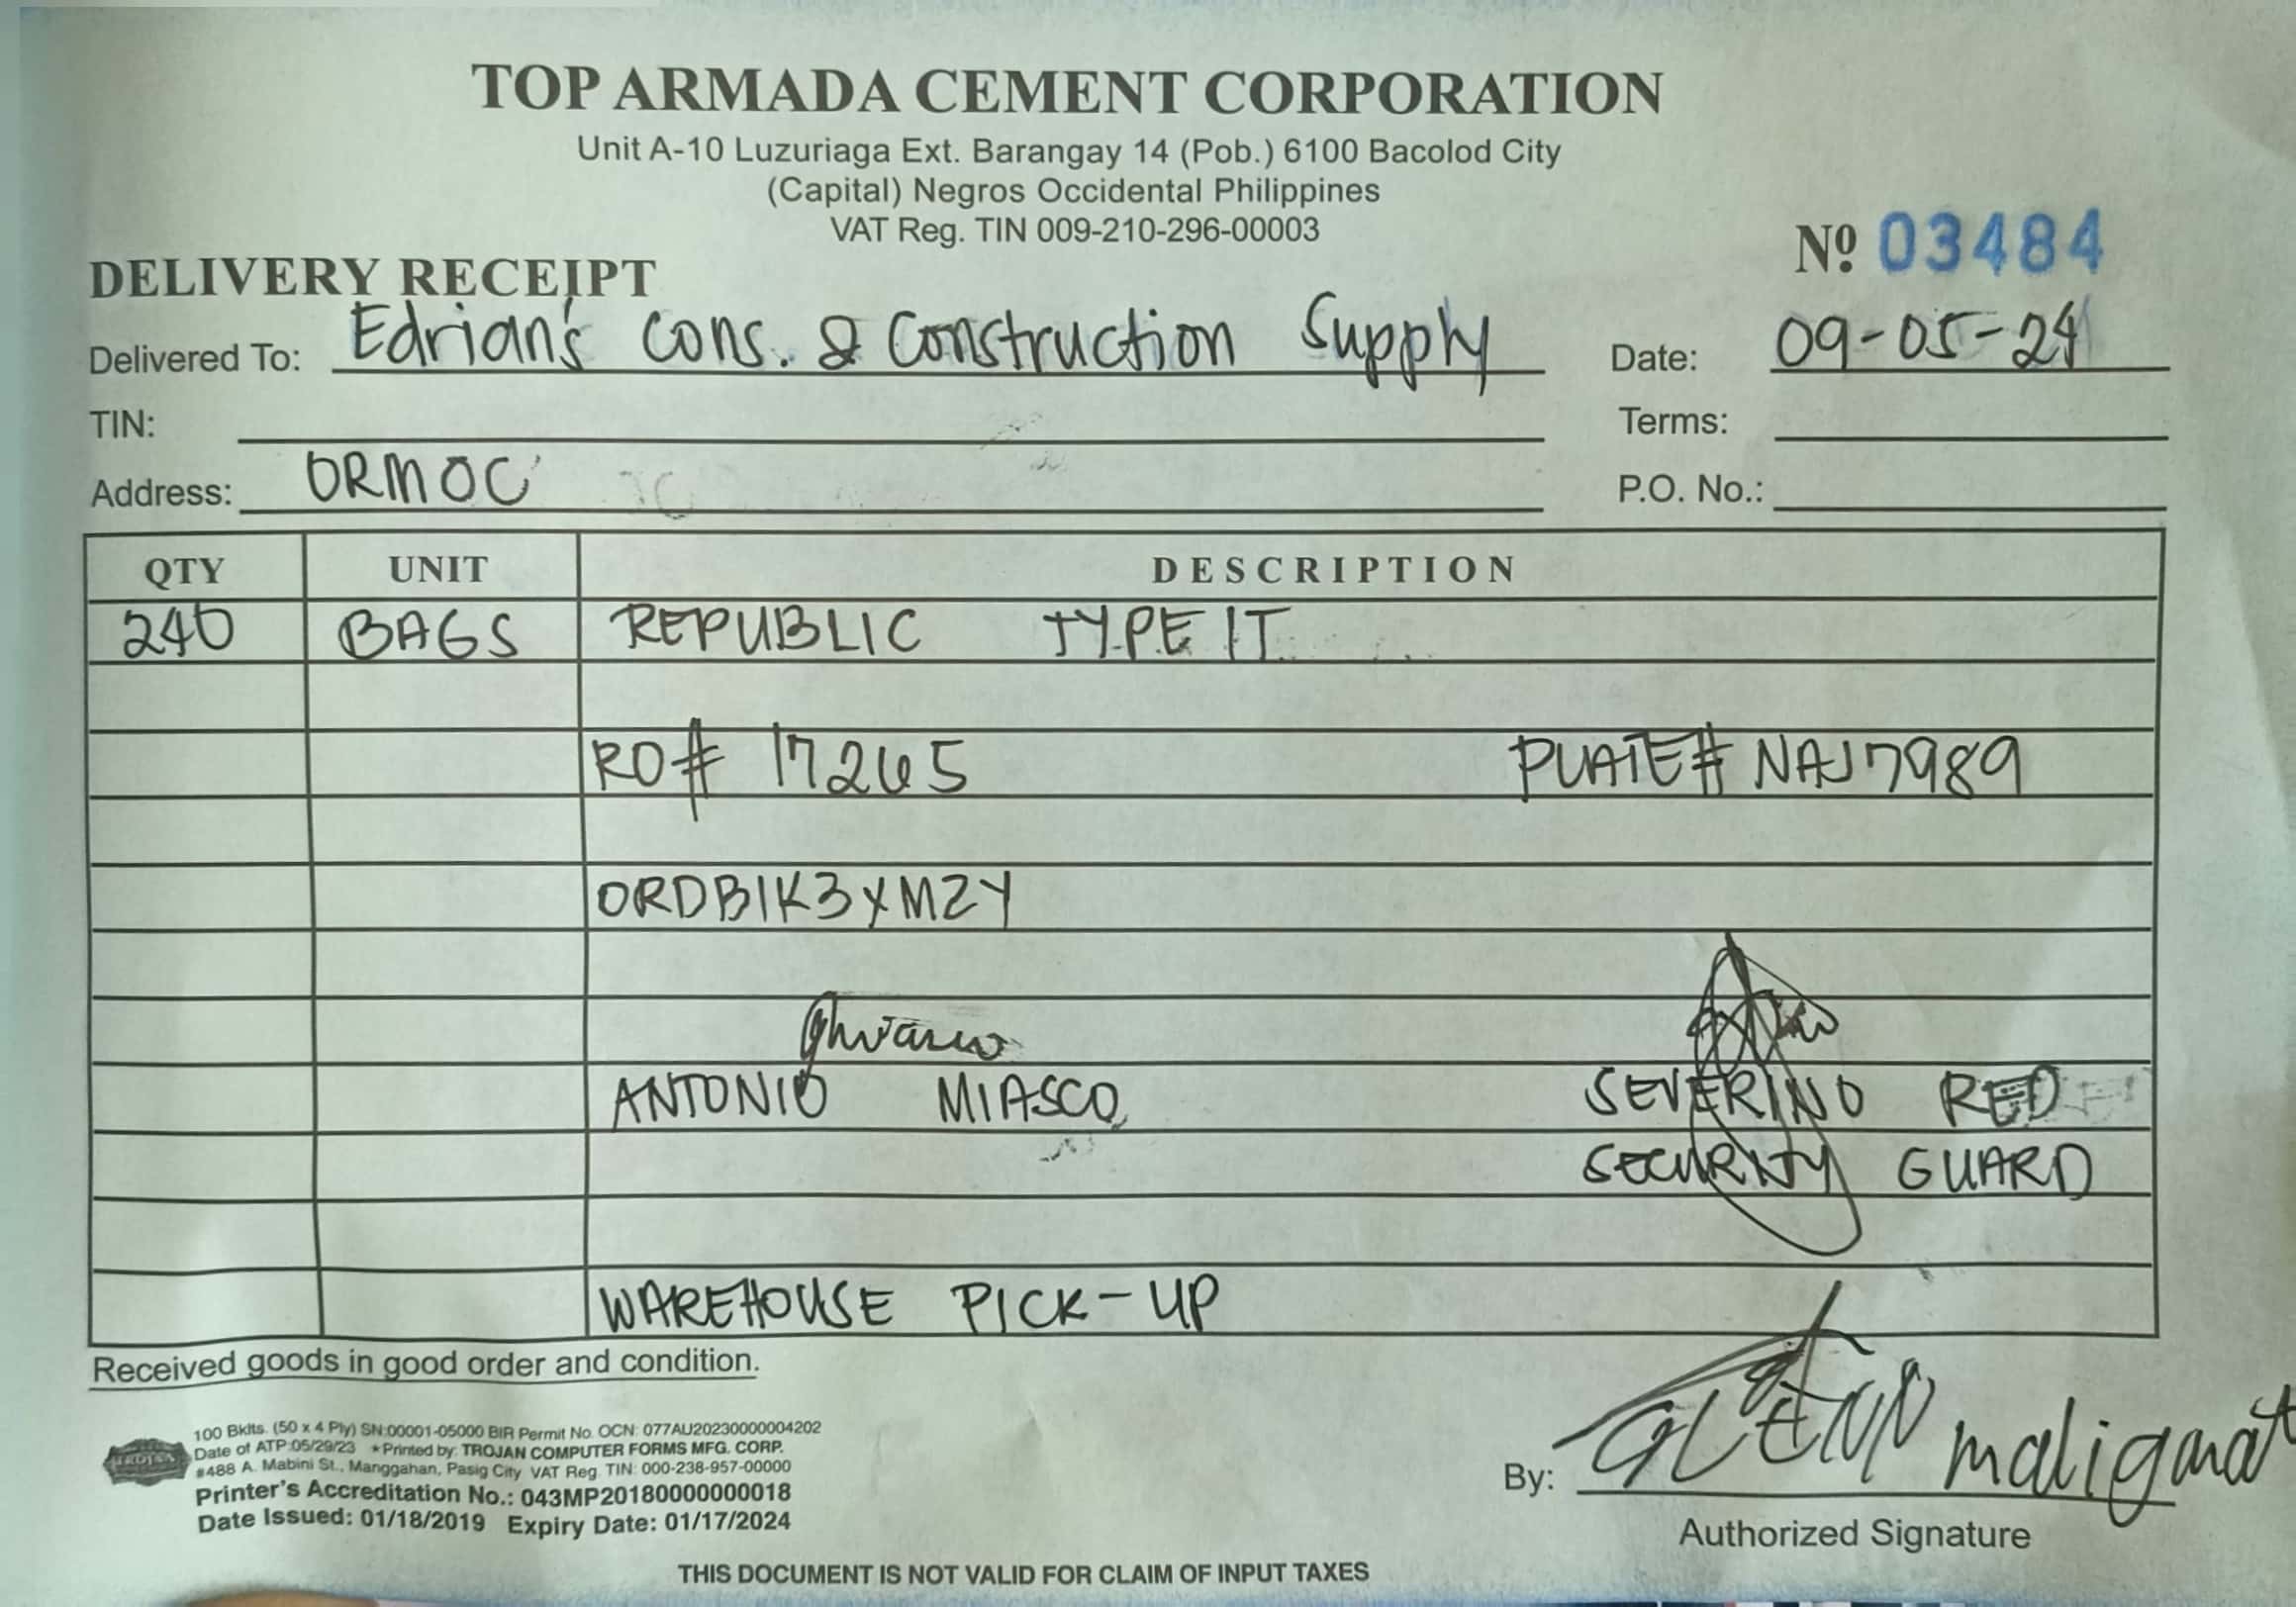 TOP ARMADA CEMENT CORPORATION
Unit A-10 Luzuriaga Ext. Barangay 14 (Pob.) 6100 Bacolod City
(Capital) Negros Occidental Philippines
VAT Reg. TIN 009-210-296-00003
Nº 03484
DELIVERY RECEIPT
Delivered To: Edrian's Cons. & Construction Supply Date: 09-05-24
TIN: Terms:
Address: ORMOC P.O. No.:
QTY UNIT DESCRIPTION
240 BAGS REPUBLIC TYPE IT
RO# 17265 PLATE# NAJ7989
ORDB1K3YMZY
ANTONIO MIASCO SEVERINO RED
SECURITY GUARD
WAREHOUSE PICK-UP
Received goods in good order and condition.
100 Bklts. (50 x 4 Ply) SN:00001-05000 BIR Permit No. OCN: 077AU20230000004202
Date of ATP:05/29/23 *Printed by: TROJAN COMPUTER FORMS MFG. CORP.
#488 A. Mabini St., Manggahan, Pasig City VAT Reg. TIN: 000-238-957-00000
Printer's Accreditation No.: 043MP20180000000018
Date Issued: 01/18/2019 Expiry Date: 01/17/2024
By: GLENN maligmat
Authorized Signature
THIS DOCUMENT IS NOT VALID FOR CLAIM OF INPUT TAXES